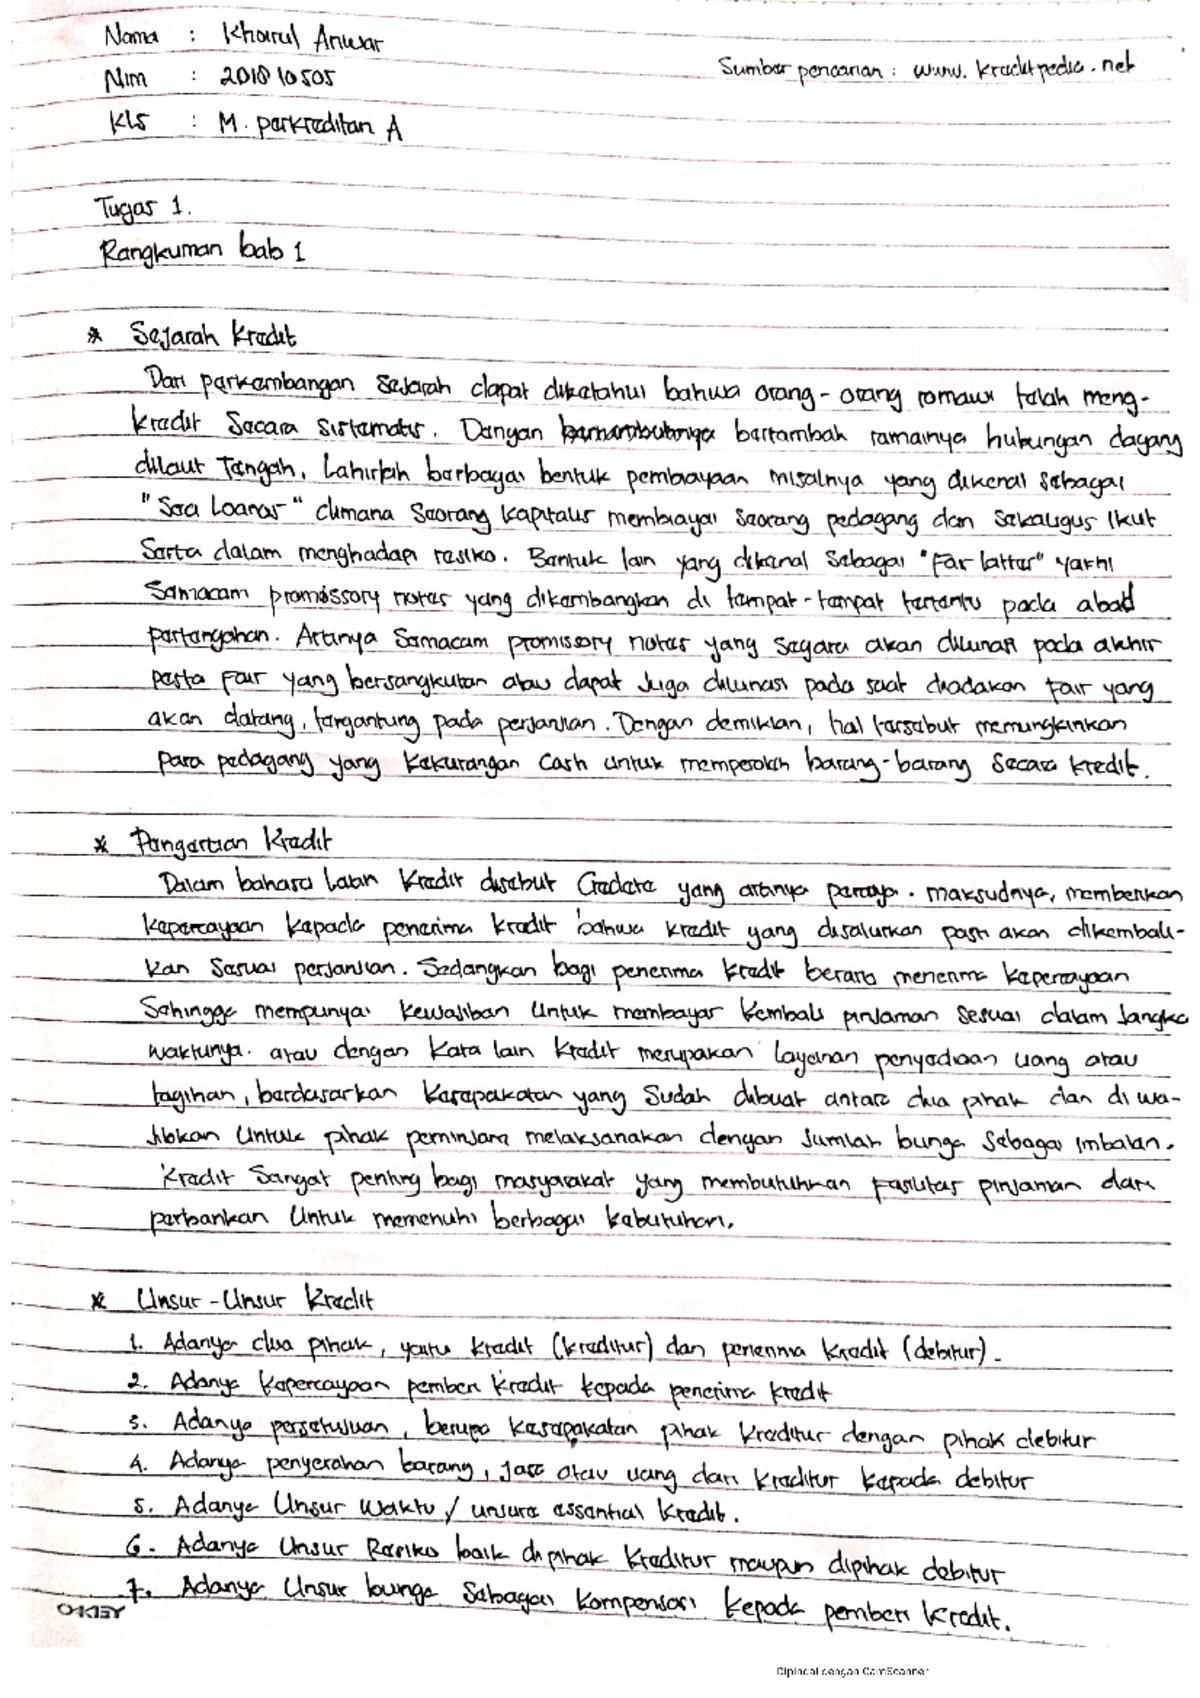 Nama : Khairul Anwar
Sumber pencarian : www. kreditpedia . net
Nim : 201010505
Kls : M. perkreditan A
Tugas 1.
Rangkuman bab 1
* Sejarah Kredit
Dari perkembangan sejarah dapat diketahui bahwa orang - orang romawi telah meng-
kredit secara sistematis. Dengan bertambah ramainya hubungan dagang
dilaut Tengah, Lahirlah berbagai bentuk pembiayaan misalnya yang dikenal sebagai
"Sea Loanas" dimana seorang kapitalis membiayai seorang pedagang dan sekaligus ikut
serta dalam menghadapi resiko. Bentuk lain yang dikenal sebagai "Fair latter" yakni
semacam promissory notes yang dikembangkan di tempat-tempat tertentu pada abad
pertengahan. Artinya semacam promissory notes yang segera akan dilunasi pada akhir
pesta fair yang bersangkutan atau dapat juga dilunasi pada saat diadakan fair yang
akan datang, tergantung pada perjanjian. Dengan demikian, hal tersebut memungkinkan
para pedagang yang kekurangan cash untuk memperoleh barang-barang secara kredit.
* Pengertian Kredit
Dalam bahasa latin kredit disebut Credere yang artinya percaya. maksudnya, memberikan
kepercayaan kepada penerima kredit bahwa kredit yang disalurkan pasti akan dikembali-
kan sesuai perjanjian. Sedangkan bagi penerima kredit berarti menerima kepercayaan
sehingga mempunyai kewajiban untuk membayar kembali pinjaman sesuai dalam jangka
waktunya. atau dengan kata lain kredit merupakan layanan penyediaan uang atau
tagihan, berdasarkan kesepakatan yang sudah dibuat antara dua pihak dan di wa-
jibkan untuk pihak peminjam melaksanakan dengan jumlah bunga sebagai imbalan.
Kredit sangat penting bagi masyarakat yang membutuhkan fasilitas pinjaman dari
perbankan untuk memenuhi berbagai kebutuhan.
* Unsur - Unsur Kredit
1. Adanya dua pihak, yaitu kredit (kreditur) dan penerima kredit (debitur).
2. Adanya kepercayaan pemberi kredit kepada penerima kredit
3. Adanya persetujuan, berupa kesepakatan pihak kreditur dengan pihak debitur
4. Adanya penyerahan barang, jasa atau uang dari kreditur kepada debitur
5. Adanya Unsur waktu / unsura essential kredit.
6. Adanya Unsur Resiko baik dipihak kreditur maupun dipihak debitur
7. Adanya Unsur bunga sebagai kompensasi kepada pemberi kredit.
OKEY
Dipindai dengan CamScanner